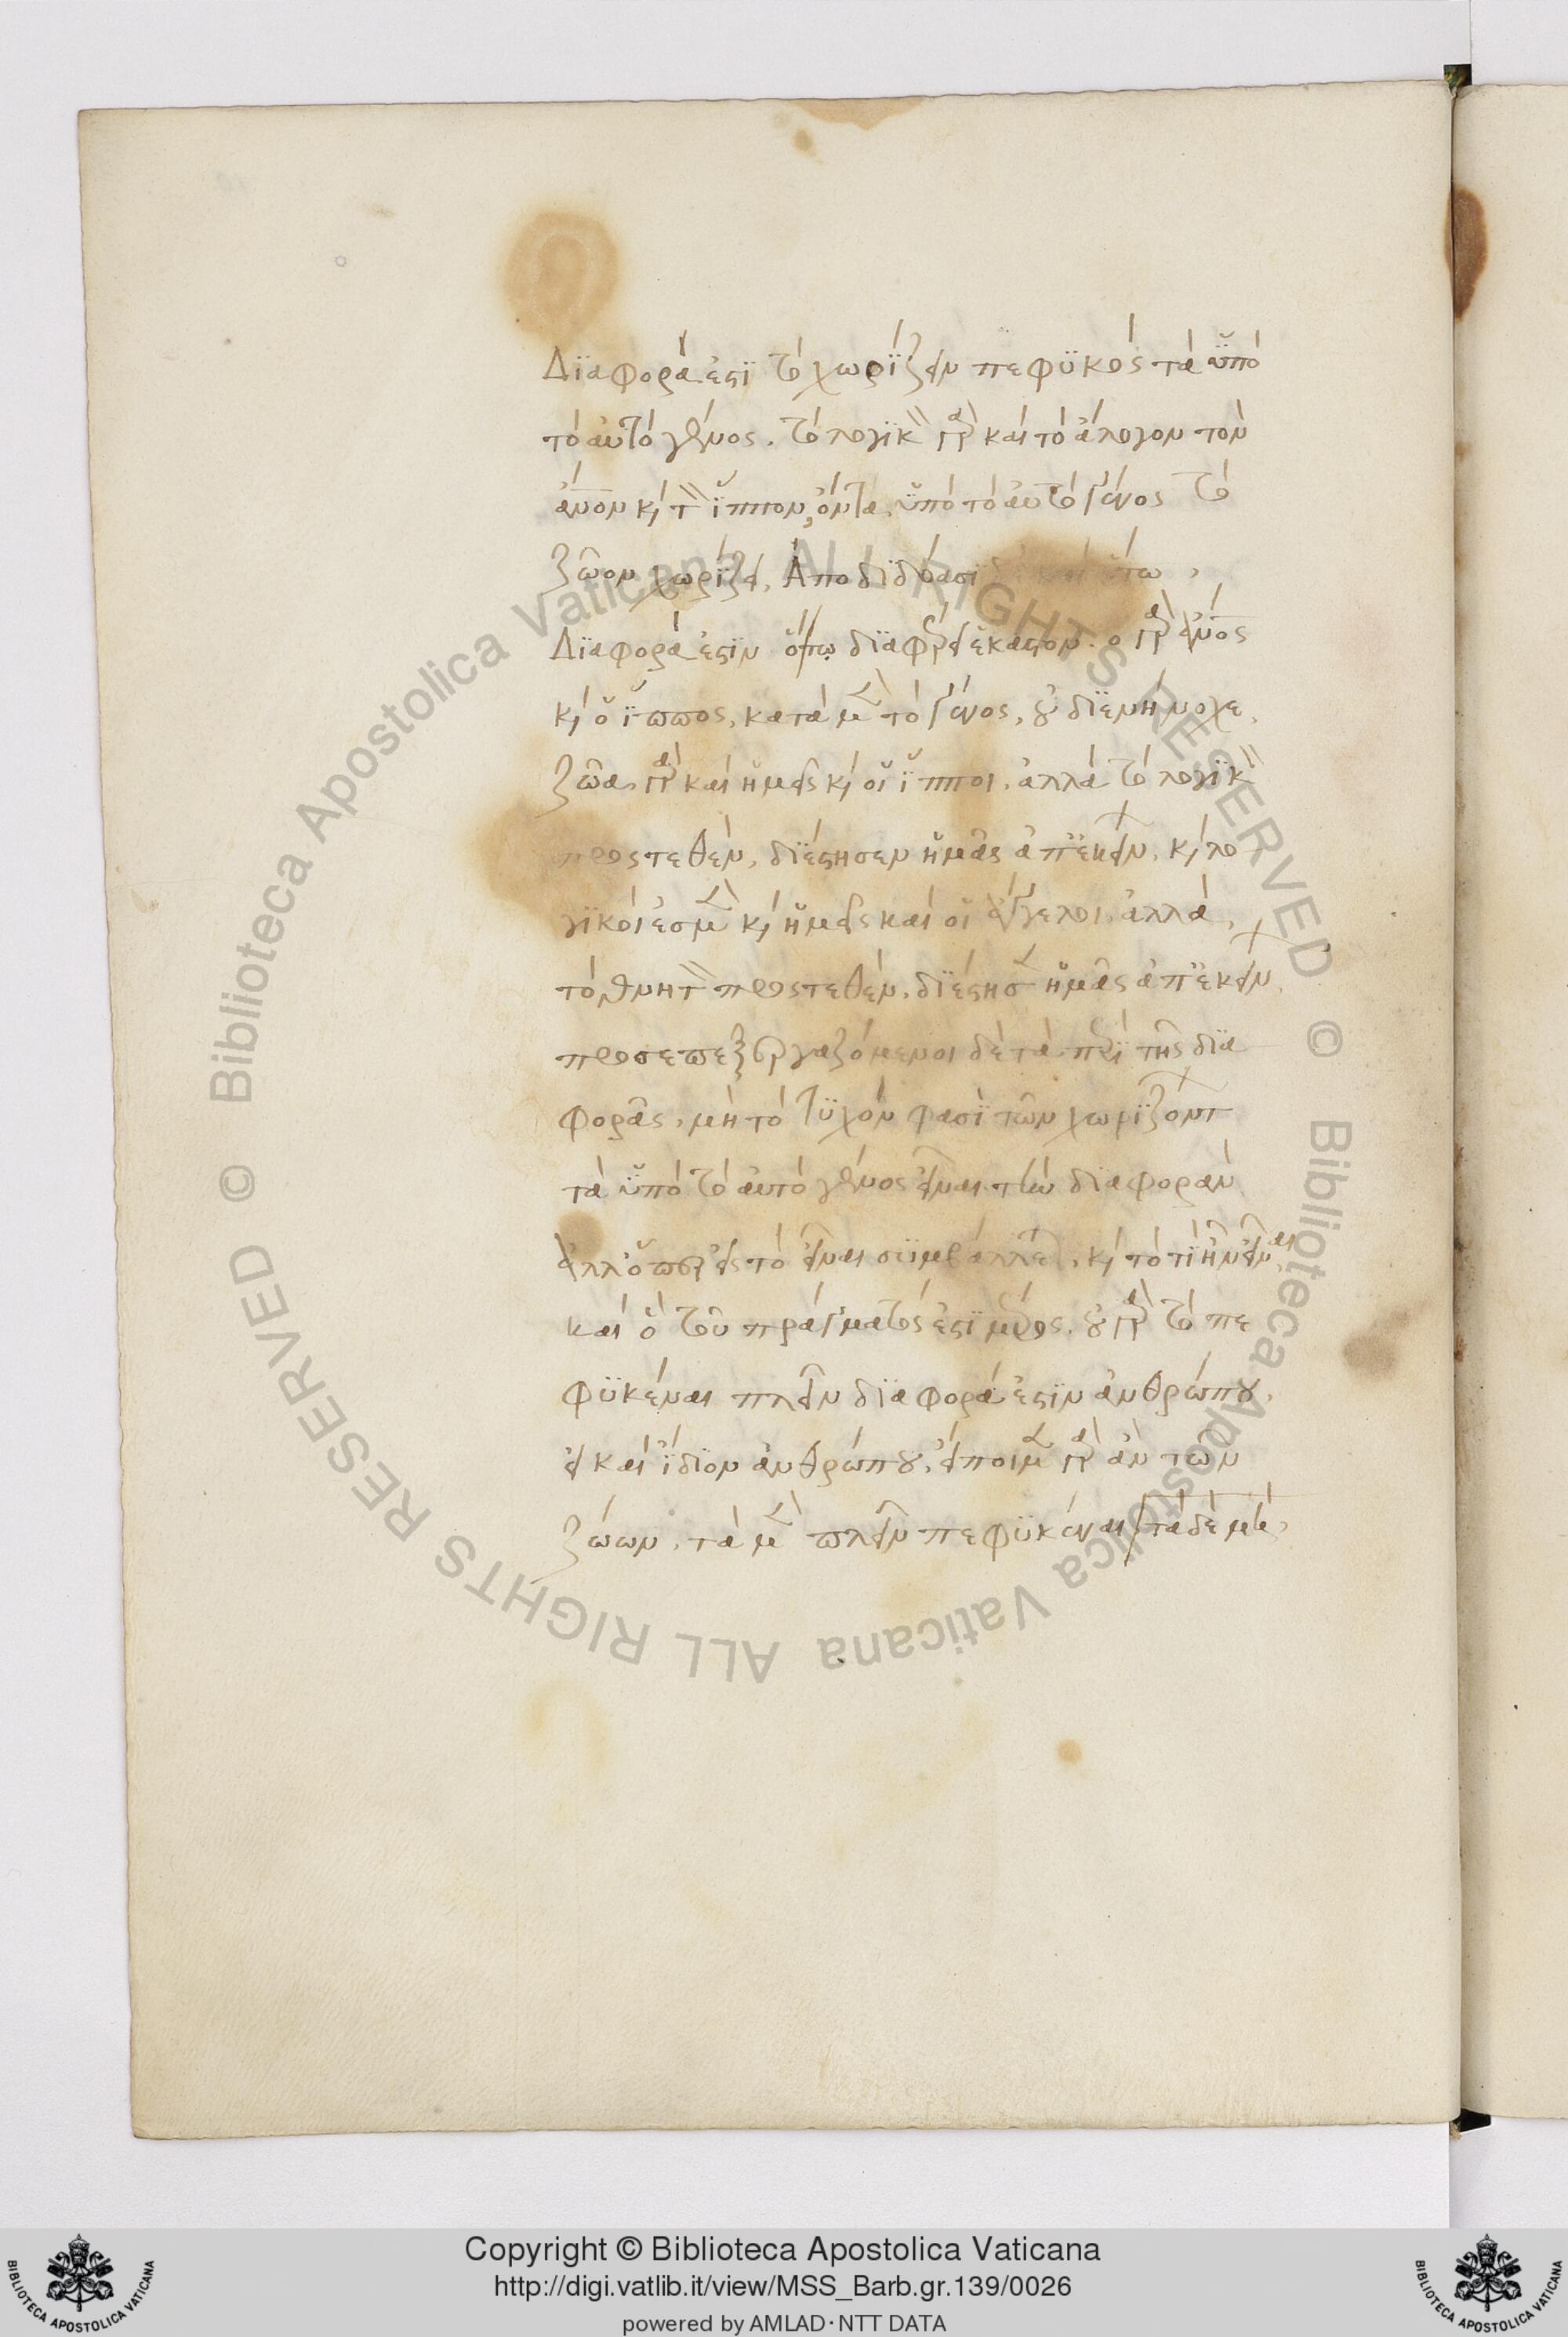 Διαφορά ἐστι τὸ χωρίζειν πεφυκὸς τὰ ὑπὸ
τὸ αὐτὸ γένος. τὸ λογικὸν γὰρ καὶ τὸ ἄλογον τὸν
ἄνον καὶ τὸν ἵππον, ὄντα ὑπὸ τὸ αὐτὸ γένος τὸ
ζῶον χωρίζει. Ἀποδιδόασι
Διαφορά ἐστιν ὅτῳ διαφέρει ἕκαστον. ὁ γὰρ ἄνος
καὶ ὁ ἵππος, κατὰ μὲν τὸ γένος, οὐ διενήνοχε.
ζῶα γὰρ καὶ ἡμεῖς καὶ οἱ ἵπποι. ἀλλὰ τὸ λογικὸν
προστεθὲν, διέστησεν ἡμᾶς ἀπ' ἐκείνων. καὶ λο
γικοί ἐσμεν καὶ ἡμεῖς καὶ οἱ ἄγγελοι. ἀλλὰ
τὸ θνητὸν προστεθὲν, διέστησεν ἡμᾶς ἀπ' ἐκείνων.
προσεπεξεργαζόμενοι δὲ τὰ περὶ τῆς δια
φορᾶς, μὴ τὸ τυχόν φασι τῶν χωριζόντων
τὰ ὑπὸ τὸ αὐτὸ γένος εἶναι τὴν διαφορὰν
ἀλλ' ὅπερ εἰς τὸ εἶναι συμβάλλεται, καὶ τὸ τί ἦν εἶναι
καὶ ὃ τοῦ πράγματός ἐστι μέρος. οὐ γὰρ τὸ πε
φυκέναι πλεῖν διαφορά ἐστιν ἀνθρώπου,
εἰ καὶ ἴδιον ἀνθρώπου, εἴποιμεν γὰρ ἂν τῶν
ζώων, τὰ μὲν πλεῖν πεφυκέναι τὰ δὲ μή,
Copyright © Biblioteca Apostolica Vaticana
http://digi.vatlib.it/view/MSS_Barb.gr.139/0026
powered by AMLAD · NTT DATA